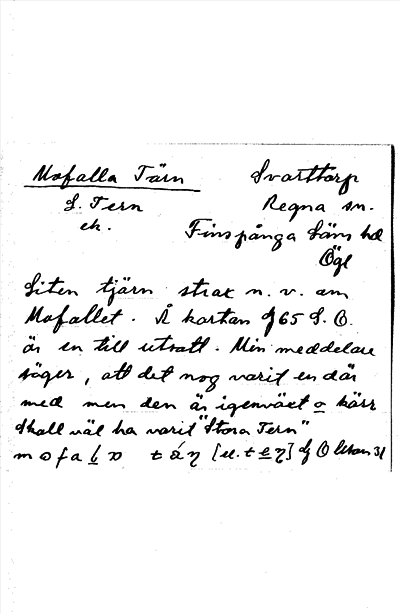 Mofalla Tärn Svarttorp
L. Tern Regna sn.
ek. Finspånga läns hd
Ögl
Liten tjärn strax n. v. om
Mofallet. Å kartan 65 S. O.
är en till utsatt. Min meddelare
säger, att det nog varit en där
med men den är igenväxt o kärr
Skall väl ha varit "Stora Tern"